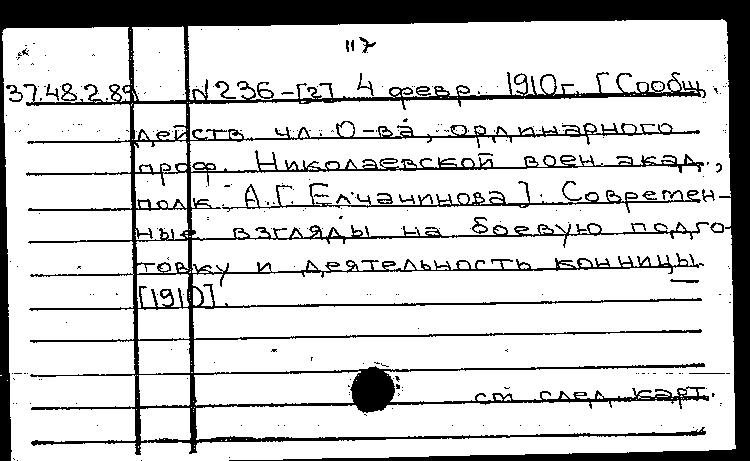 117
37.48.2.89 № 236-[2]. 4 февр. 1910г. [Сообщ.
действ. чл. О-ва, ординарного
проф. Николаевской воен. акад.,
полк. А.Г. Елчанинова]: Современ-
ные взгляды на боевую подго-
товку и деятельность конницы.
[1910].
см след. карт.